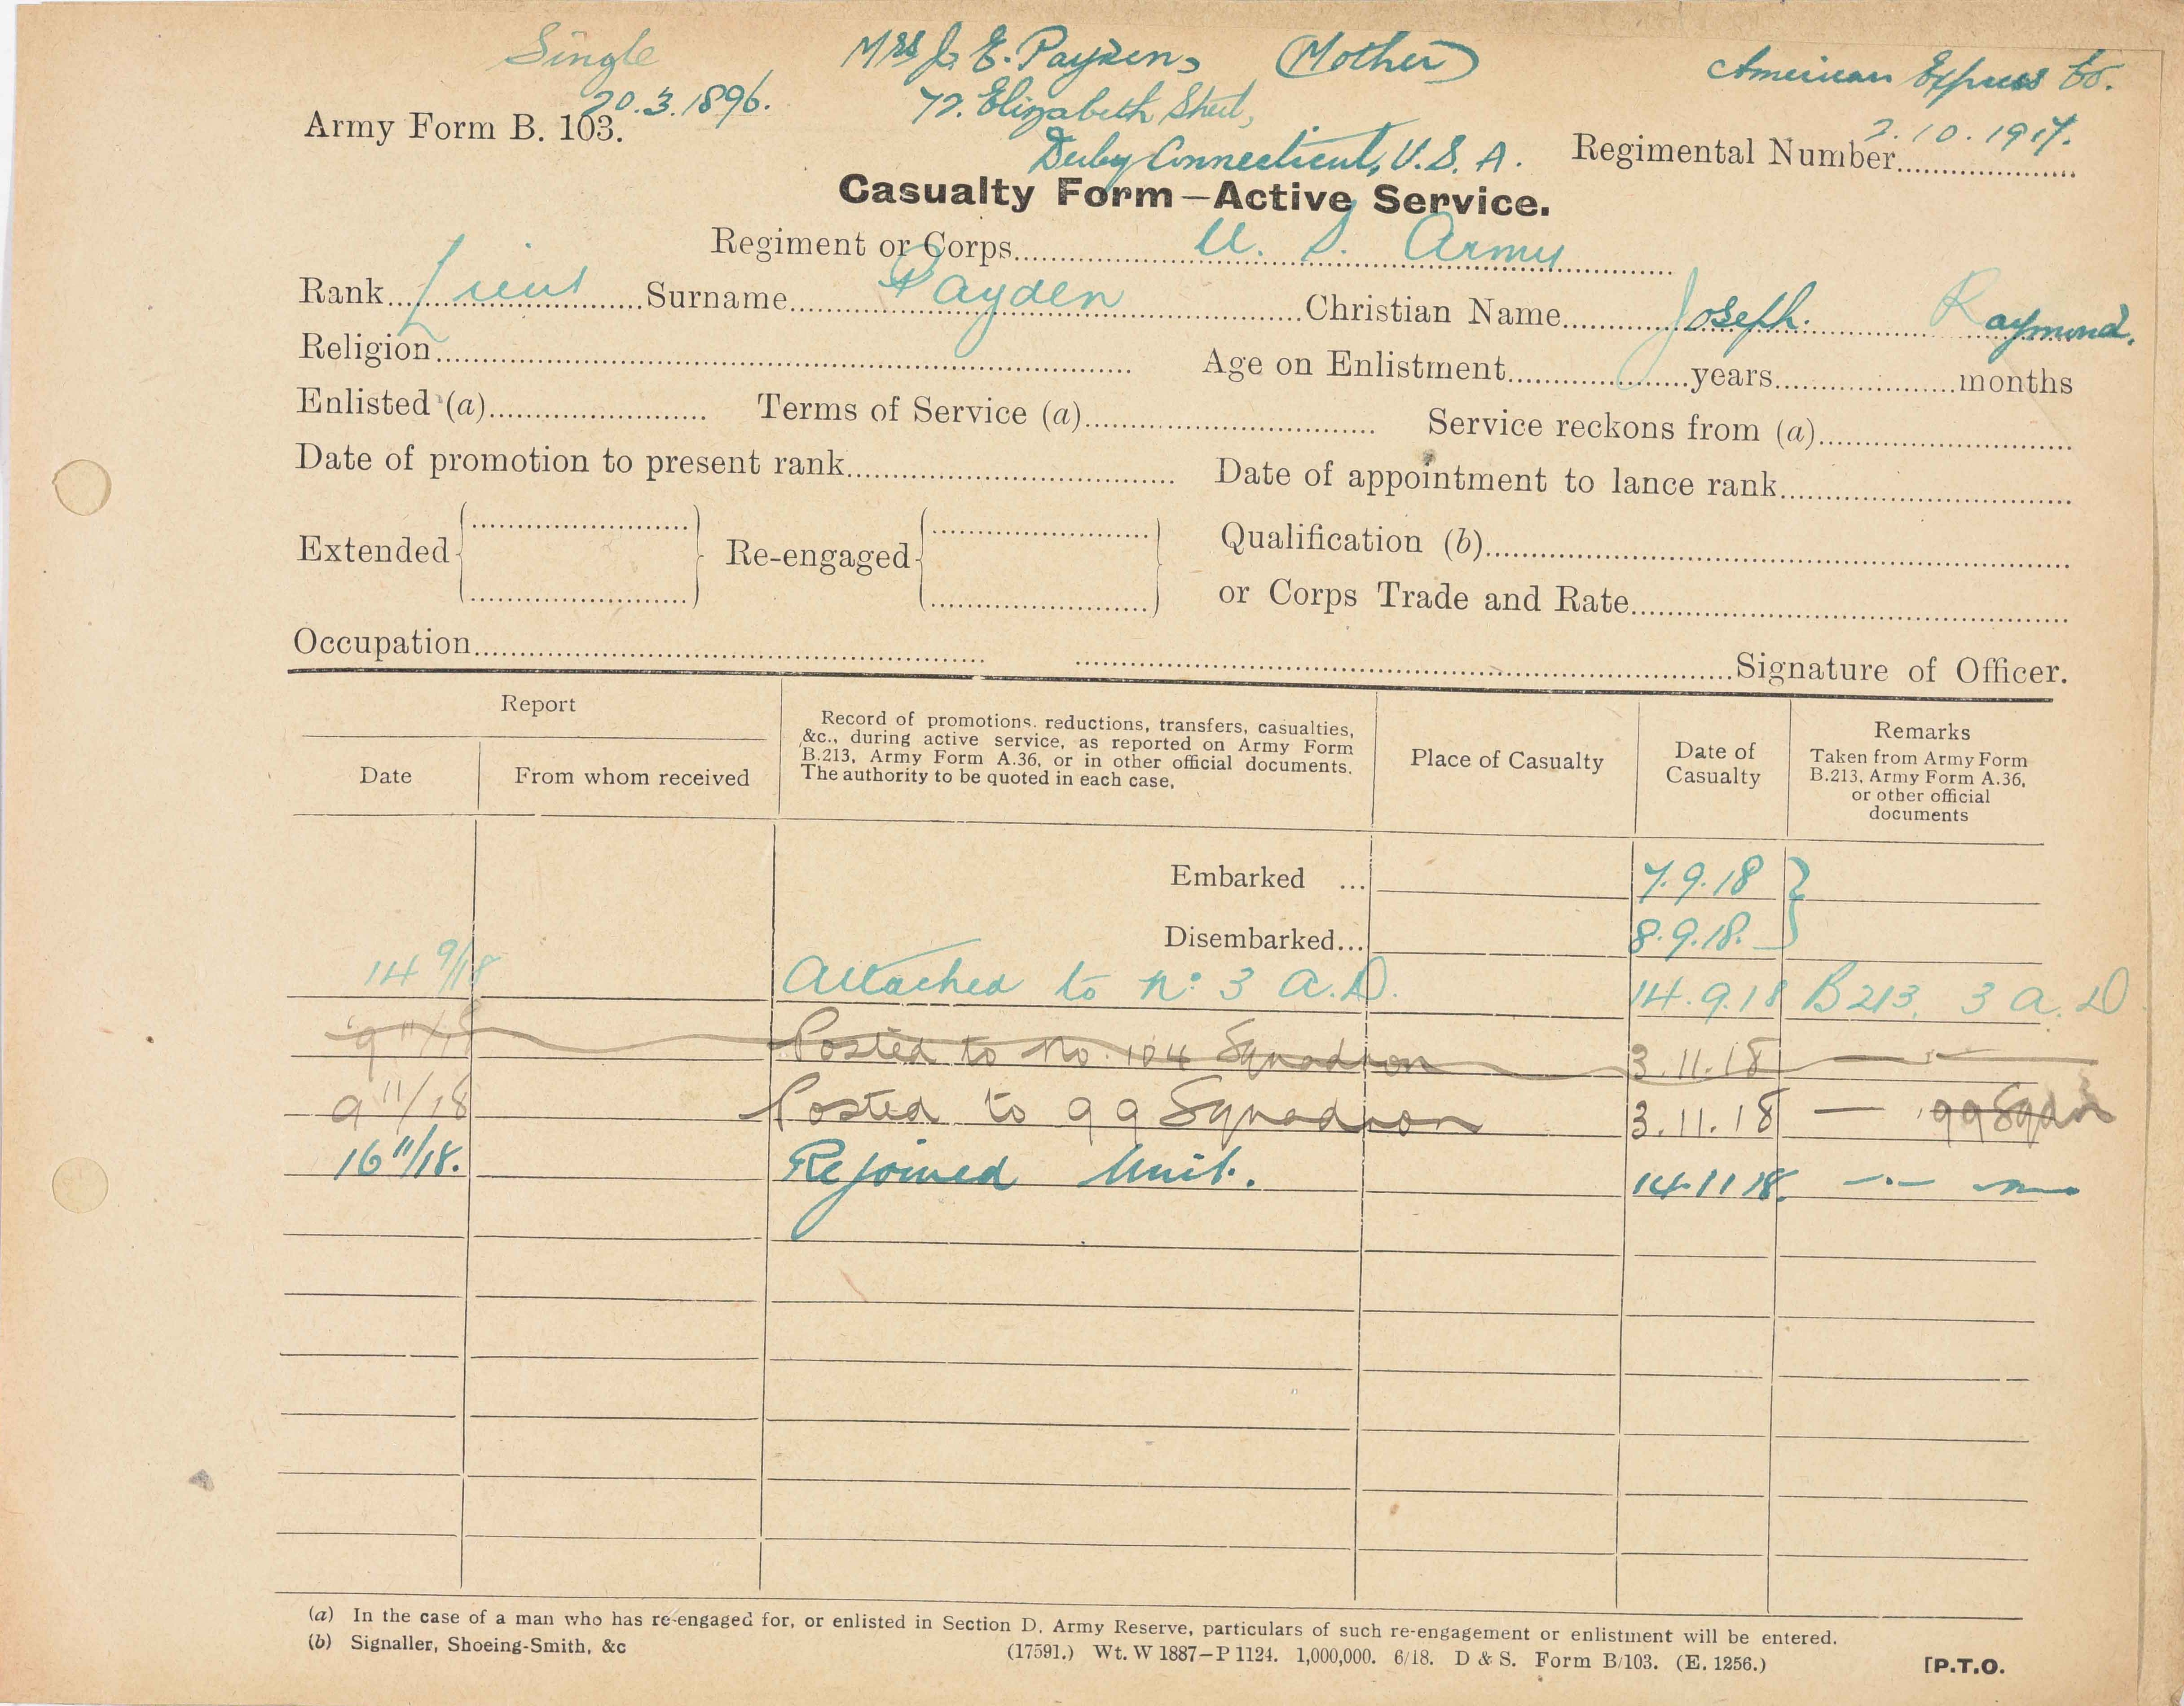 Single Mrs J. E. Payden, (Mother) American Express Co.
20.3.1896. 72. Elizabeth Street, 2.10.1917.
Army Form B. 103. Derby Connecticut, U.S.A. Regimental Number
Casualty Form—Active Service.
Regiment or Corps U. S. Army
Rank Lieut Surname Payden Christian Name Joseph. Raymond.
Religion Age on Enlistment years months
Enlisted (a) Terms of Service (a) Service reckons from (a)
Date of promotion to present rank Date of appointment to lance rank
Extended Re-engaged Qualification (b)
or Corps Trade and Rate
Occupation Signature of Officer.
Report
Date
From whom received
Record of promotions, reductions, transfers, casualties,
&c., during active service, as reported on Army Form
B.213, Army Form A.36, or in other official documents.
The authority to be quoted in each case.
Place of Casualty
Date of
Casualty
Remarks
Taken from Army Form
B.213, Army Form A.36,
or other official
documents
Embarked ... 7.9.18
Disembarked... 8.9.18.
14 9/18 Attached to No: 3 A.D. 14.9.18 B213. 3 A.D
9 11/18 Posted to No. 104 Squadron 3.11.18 —
9 11/18 Posted to 99 Squadron 3.11.18 — 99 Sqdn
16 11/18. Rejoined Unit. 14.11.18.
(a) In the case of a man who has re-engaged for, or enlisted in Section D. Army Reserve, particulars of such re-engagement or enlistment will be entered.
(b) Signaller, Shoeing-Smith, &c (17591.) Wt. W 1887—P 1124. 1,000,000. 6/18. D & S. Form B/103. (E. 1256.) [P.T.O.